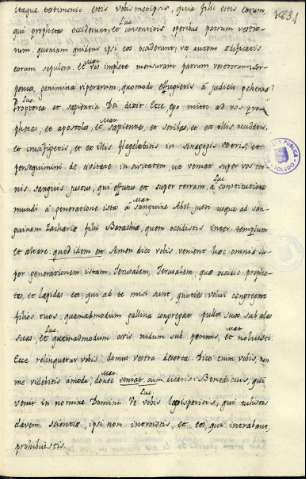 itaque testimonio estis vobis metipsis, quia filii estis eorum
qui prophetas occiderunt, et consentitis operibus patrum vestro-
rum quoniam quidem ipsi eos occiderunt, vos autem edificatis
eorum sepulcra. et vos implete mensuram patrum vestrorum. Ser-
pentes, genimina viperarum, quomodo effugietis a judicio gehenne?
Propterea et sapientia Dei dixit Ecce ego mitto ad vos pro-
phetas, et apostolos, et sapientes, et scribas, et ex illis occidetis,
et crucifigetis, et ex illis flagellabitis in sinagogis vestris, et
persequemini de civitate in civitatem ut veniat super vos om-
nis sanguis justus, qui effusus est super terram a constitutione
mundi a generatione ista a sanguine Abel justi usque ad san-
guinem Zacharie filii Barachie, quem occidistis inter templum
et altare. Amen dico vobis venient hec omnia su-
per generationem istam. Jerusalem, Jerusalem que occidis prophe-
tas, et lapidas eos qui ad te missi sunt, quoties volui congregare
filios tuos, quemadmodum gallina congregat pullos suos sub alas
suas et quemadmodum avis nidum sub pennis, et noluisti
Ecce relinquetur vobis domus vestra deserta. Dico enim vobis, non
me videbitis amodo, donec veniat cum dicetis: Benedictus, qui
venit in nomine Domini. Ve vobis legisperitis, qui tulistis
clavem scientie, ipsi non introistis, et eos, qui introibant,
prohibuistis.